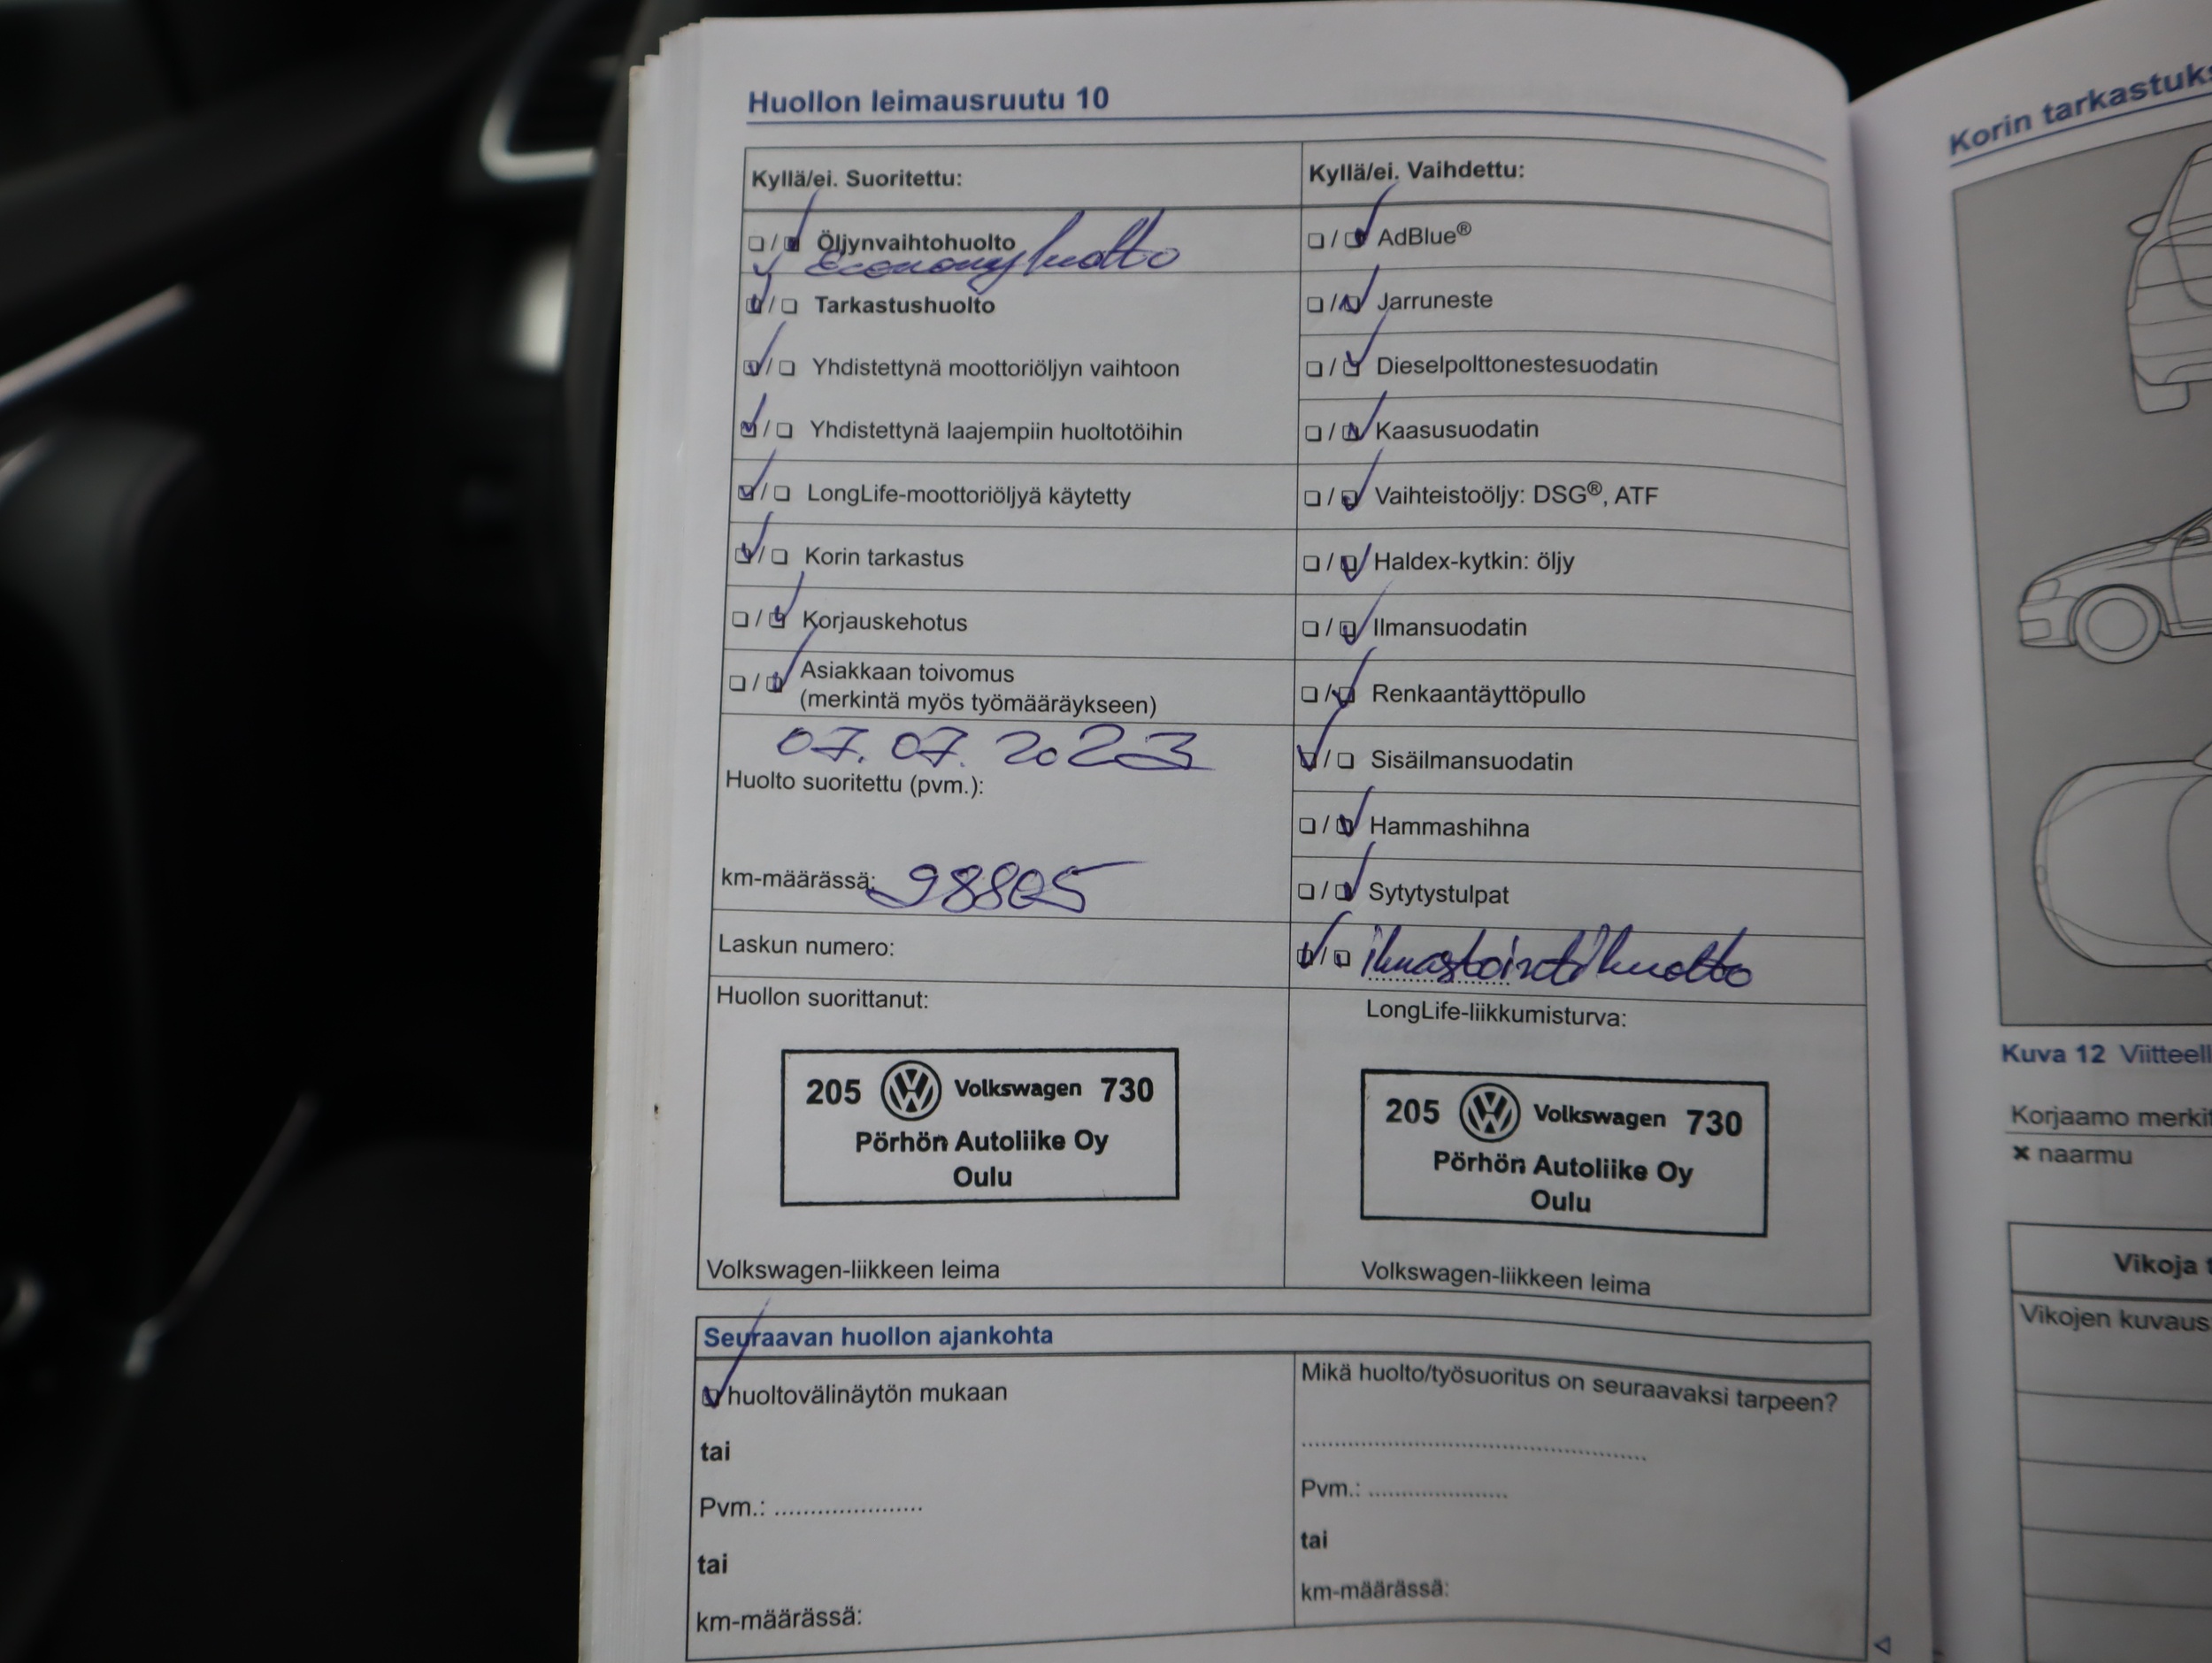 Huollon leimausruutu 10
Kyllä/ei. Suoritettu:
Öljynvaihtohuolto
Economyhuolto
Tarkastushuolto
Yhdistettynä moottoriöljyn vaihtoon
Yhdistettynä laajempiin huoltotöihin
LongLife-moottoriöljyä käytetty
Korin tarkastus
Korjauskehotus
Asiakkaan toivomus
(merkintä myös työmääräykseen)
07.07.2023
Huolto suoritettu (pvm.):
km-määrässä: 98805
Laskun numero:
Huollon suorittanut:
205 Volkswagen 730
Pörhön Autoliike Oy
Oulu
Volkswagen-liikkeen leima
Kyllä/ei. Vaihdettu:
AdBlue®
Jarruneste
Dieselpolttonestesuodatin
Kaasusuodatin
Vaihteistoöljy: DSG®, ATF
Haldex-kytkin: öljy
Ilmansuodatin
Renkaantäyttöpullo
Sisäilmansuodatin
Hammashihna
Sytytystulpat
ilmastointihuolto
LongLife-liikkumisturva:
205 Volkswagen 730
Pörhön Autoliike Oy
Oulu
Volkswagen-liikkeen leima
Seuraavan huollon ajankohta
huoltovälinäytön mukaan
tai
Pvm.: ......................
tai
km-määrässä:
Mikä huolto/työsuoritus on seuraavaksi tarpeen?
Pvm.: .....................
tai
km-määrässä:
Korin tarkastuks
Kuva 12 Viitteell
Korjaamo merkit
× naarmu
Vikoja t
Vikojen kuvaus